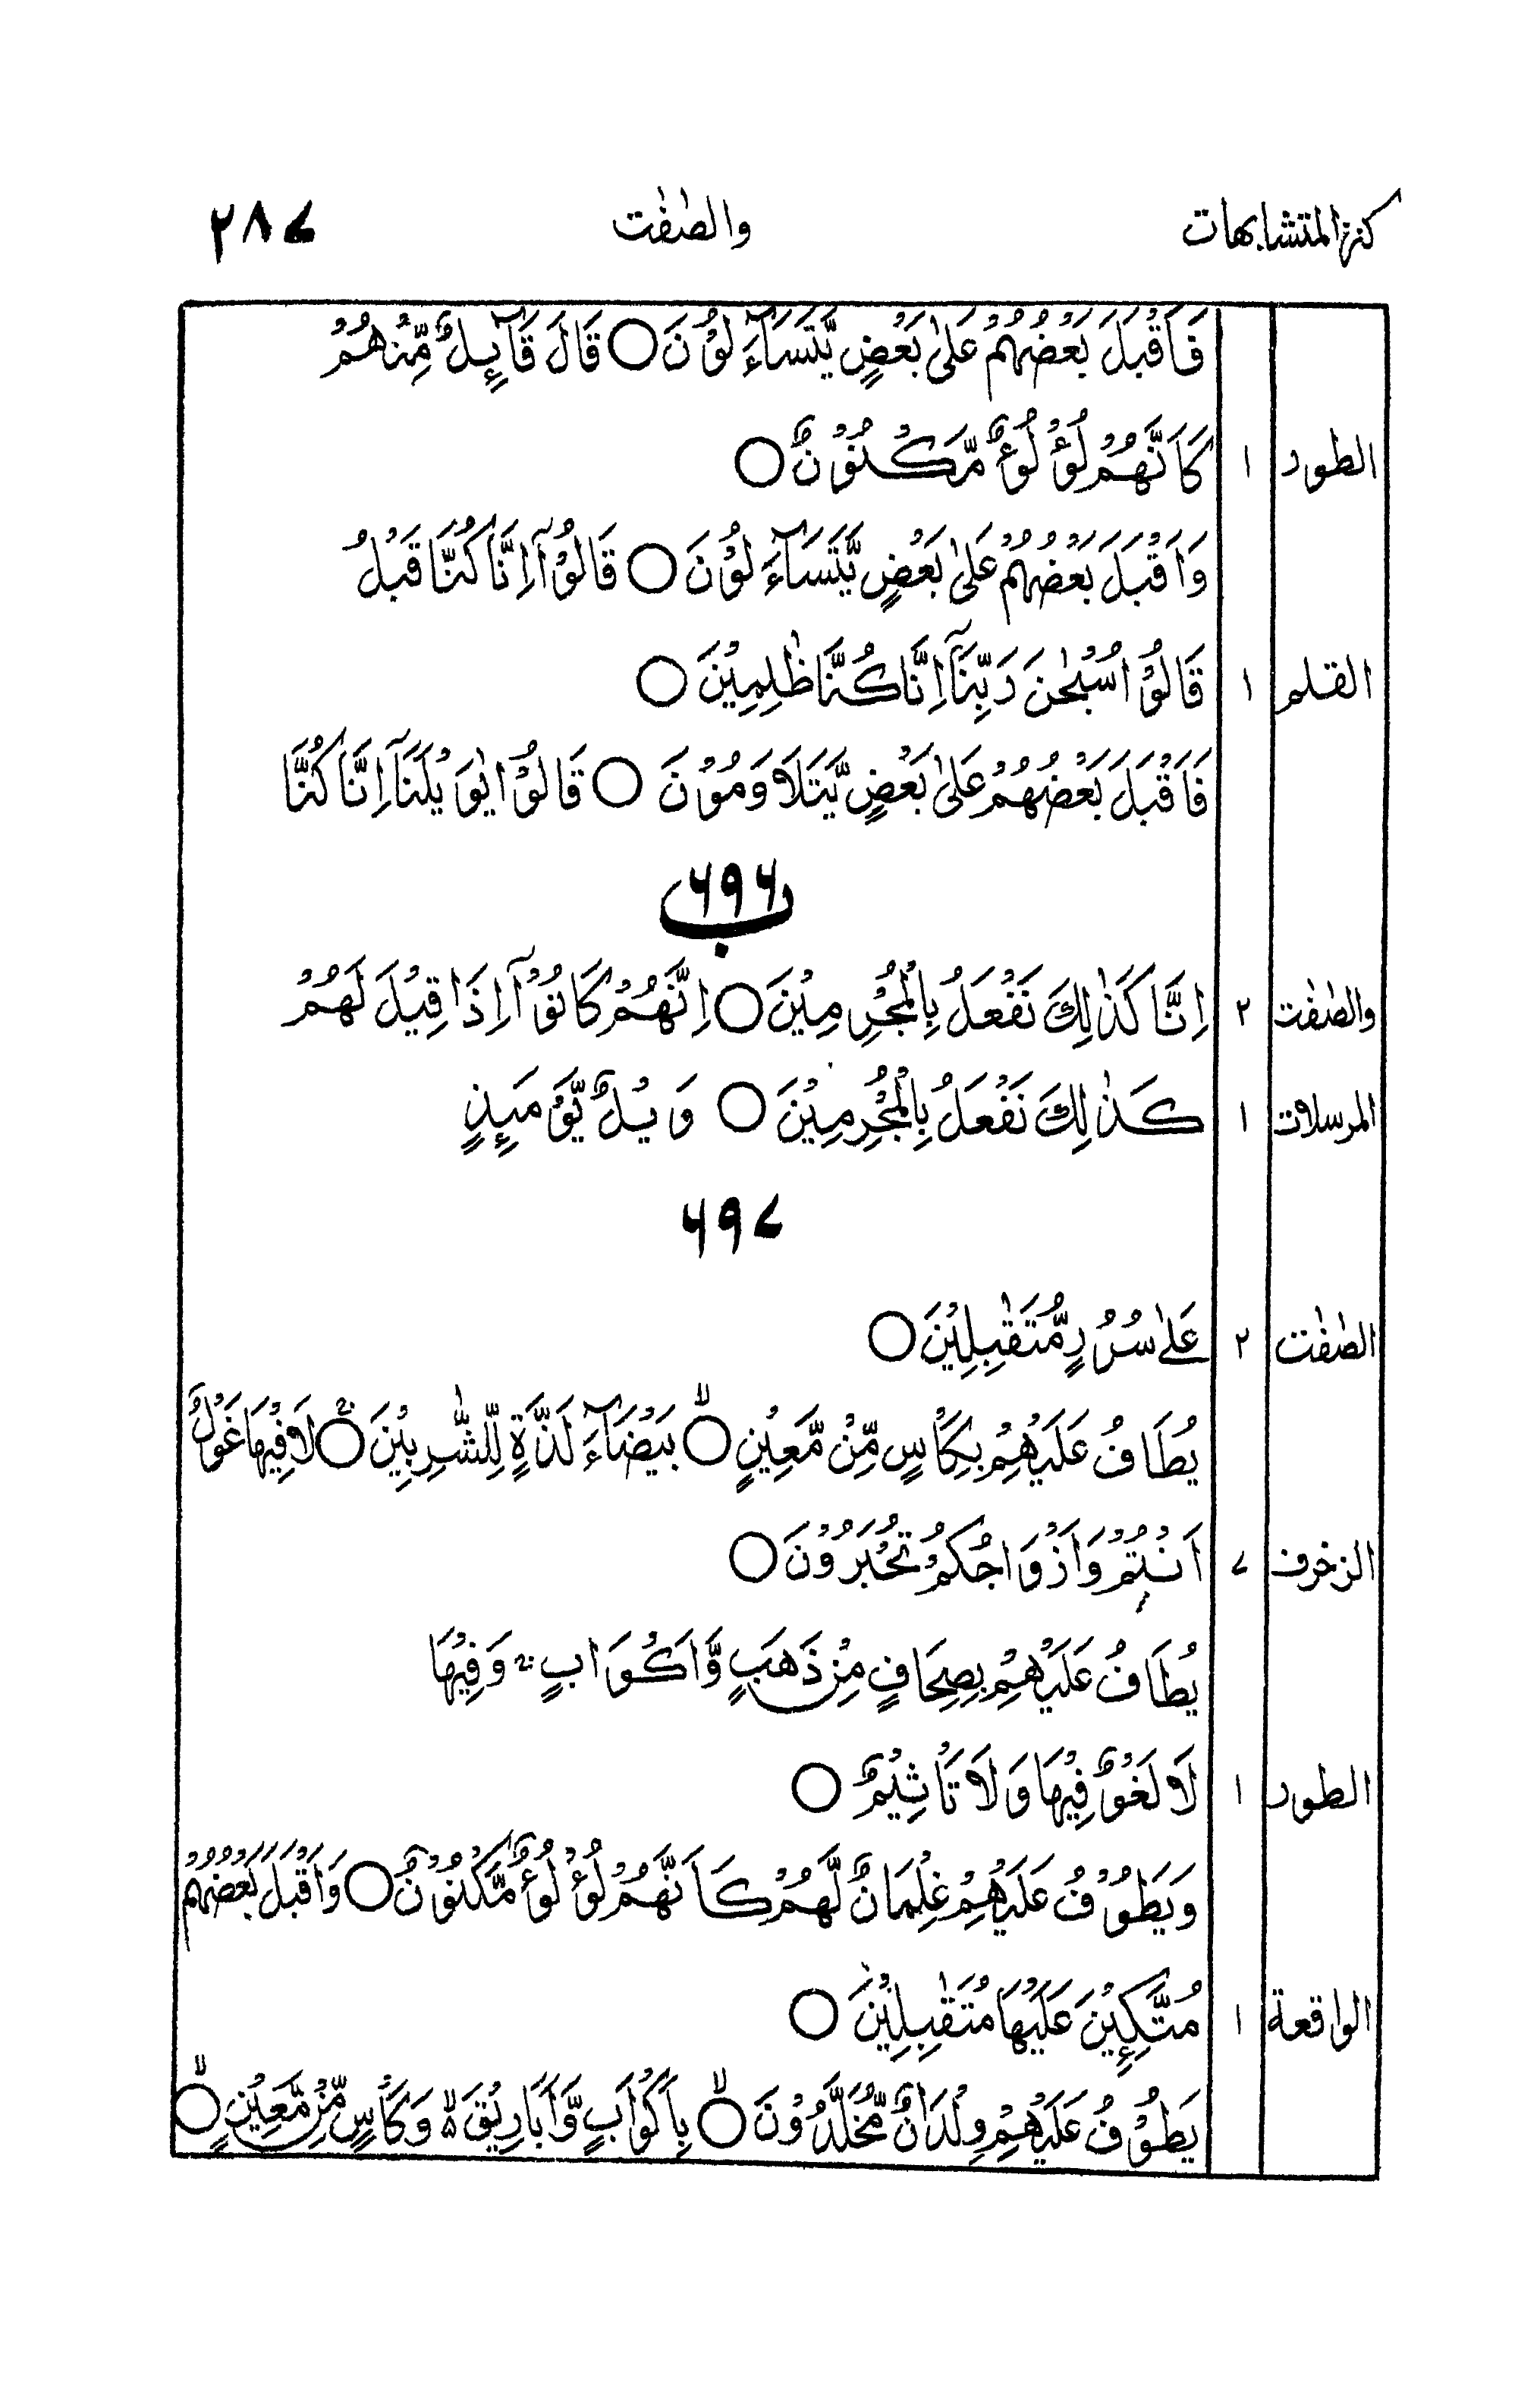 كنز المتشابهات والصّٰفّٰت ۲۸۷
فَاَقْبَلَ بَعْضُهُمْ عَلٰى بَعْضٍ يَّتَسَآءَلُوْنَ ○ قَالَ قَآئِلٌ مِّنْهُمْ
الطور ۱ كَاَنَّهُمْ لُؤْلُؤٌ مَّكْنُوْنٌ ○
وَاَقْبَلَ بَعْضُهُمْ عَلٰى بَعْضٍ يَّتَسَآءَلُوْنَ ○ قَالُوْٓا اِنَّا كُنَّا قَبْلُ
القلم ۱ قَالُوْا سُبْحٰنَ رَبِّنَآ اِنَّا كُنَّا ظٰلِمِيْنَ ○
فَاَقْبَلَ بَعْضُهُمْ عَلٰى بَعْضٍ يَّتَلَاوَمُوْنَ ○ قَالُوْا يٰوَيْلَنَآ اِنَّا كُنَّا
۶۹۶
ب
والصّٰفّٰت ۲ اِنَّا كَذٰلِكَ نَفْعَلُ بِالْمُجْرِمِيْنَ ○ اِنَّهُمْ كَانُوْٓا اِذَا قِيْلَ لَهُمْ
المرسلات ۱ كَذٰلِكَ نَفْعَلُ بِالْمُجْرِمِيْنَ ○ وَيْلٌ يَّوْمَئِذٍ
۶۹۷
الصّٰفّٰت ۲ عَلٰى سُرُرٍ مُّتَقٰبِلِيْنَ ○
يُطَافُ عَلَيْهِمْ بِكَاْسٍ مِّنْ مَّعِيْنٍ ○ۙ بَيْضَآءَ لَذَّةٍ لِّلشّٰرِبِيْنَ ○ۚ لَا فِيْهَا غَوْلٌ
الزخرف ۷ اَنْتُمْ وَاَزْوَاجُكُمْ تُحْبَرُوْنَ ○
يُطَافُ عَلَيْهِمْ بِصِحَافٍ مِّنْ ذَهَبٍ وَّاَكْوَابٍ ۚ وَفِيْهَا
الطور ۱ لَا لَغْوٌ فِيْهَا وَلَا تَاْثِيْمٌ ○
وَيَطُوْفُ عَلَيْهِمْ غِلْمَانٌ لَّهُمْ كَاَنَّهُمْ لُؤْلُؤٌ مَّكْنُوْنٌ ○ وَاَقْبَلَ بَعْضُهُمْ
الواقعة ۱ مُتَّكِئِيْنَ عَلَيْهَا مُتَقٰبِلِيْنَ ○
يَطُوْفُ عَلَيْهِمْ وِلْدَانٌ مُّخَلَّدُوْنَ ○ۙ بِاَكْوَابٍ وَّاَبَارِيْقَ ۙ۬ وَكَاْسٍ مِّنْ مَّعِيْنٍ ○ۙ